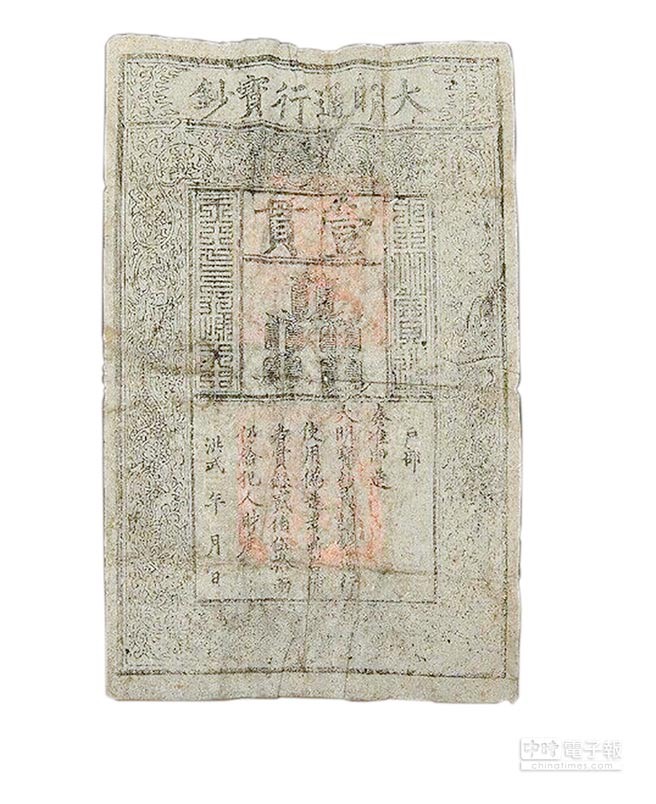 大明通行寶鈔
壹貫
大明寶鈔
天下通行
户部
奏准印造
大明寶鈔與銅錢通行
使用偽造者斬告捕
者賞銀貳伯伍拾兩
仍給犯人財產
洪武 年 月 日
中時電子報
chinatimes.com